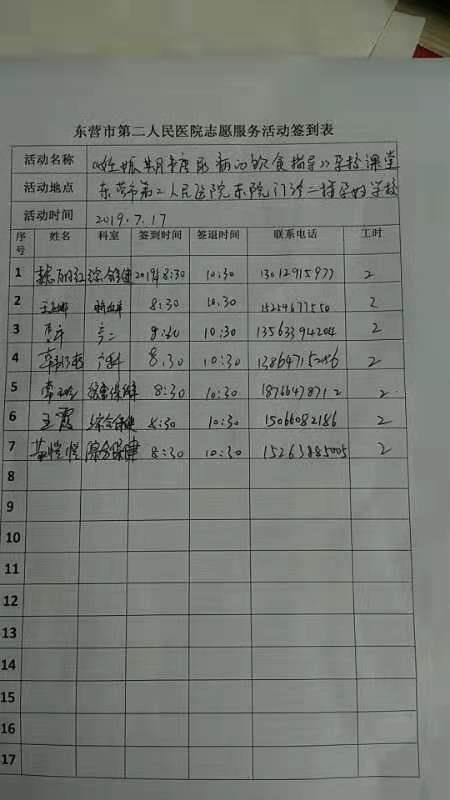 东营市第二人民医院志愿服务活动签到表
活动名称 《妊娠期糖尿病的饮食指导》孕校课堂
活动地点 东营市第二人民医院东院门诊二楼孕妇学校
活动时间 2019.7.17
序号 姓名 科室 签到时间 签退时间 联系电话 工时
1 综合保健 8:30 10:30 13012915977 2
2 8:30 10:30 2
3 产二 8:30 10:30 13563394204 2
4 产科 8:30 10:30 2
5 综合保健 8:30 10:30 18766478712 2
6 王霞 综合保健 8:30 10:30 15066082186 2
7 综合保健 8:30 10:30 15263885005 2
8
9
10
11
12
13
14
15
16
17